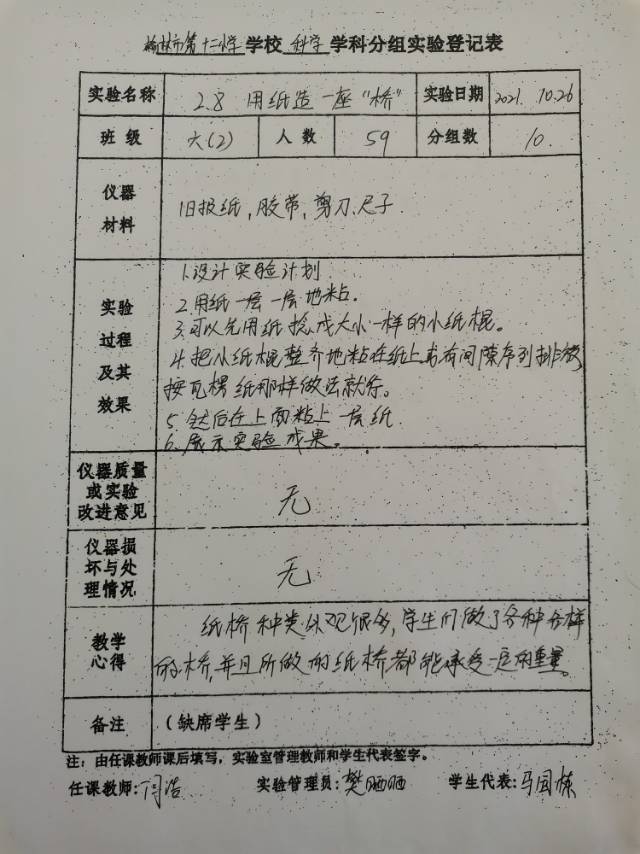 榆林市第十二小学 学校 科学 学科分组实验登记表
实验名称 2.8 用纸造一座“桥” 实验日期 2021.10.26
班级 六(2) 人数 59 分组数 10.
仪器材料 旧报纸,胶带,剪刀.尺子.
实验过程及其效果
1.设计实验计划
2.用纸一层一层地粘.
3.可以先用纸捻成大小一样的小纸棍。
4.把小纸棍整齐地粘在纸上,有间隙序列排
按瓦楞纸那样做法就行。
5.然后在上面粘上一层纸
6.展示实验成果。
仪器质量或实验改进意见 无
仪器损坏与处理情况 无
教学心得
纸桥种类外观很多,学生们做了各种各样
的桥,并且所做的纸桥都能承受一定的重量。
备注 (缺席学生)
注:由任课教师课后填写,实验室管理教师和学生代表签字。
任课教师:闫浩 实验管理员:樊晒晒 学生代表:马国栋